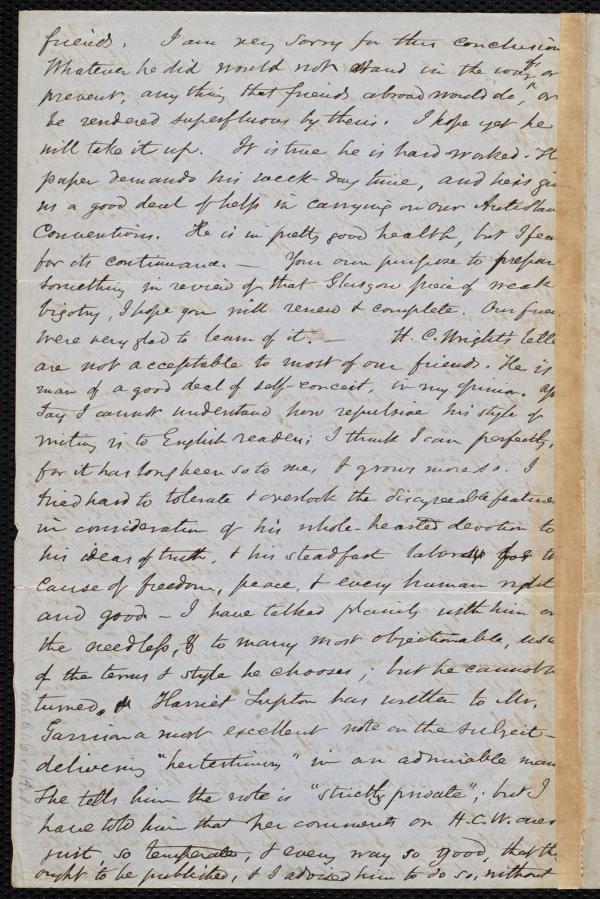 friends. I am very sorry for this conclusion
Whatever he did would not stand in the way of, or
prevent, any thing that friends abroad would do, or
be rendered superfluous by theirs. I hope yet he
will take it up. It is true he is hard worked. H
paper demands his week-day time, and he is gi
us a good deal of help in carrying on our Antislav
Conventions. He is in pretty good health, but I fea
for its continuance. — Your own purpose to prepar
something in review of that Glasgow piece of weak
bigotry, I hope you will renew & complete. Our frien
were very glad to learn of it. — H. C. Wright's lette
are not acceptable to most of our friends. He is
man of a good deal of self-conceit, in my opinion.
say I cannot understand how repulsive his style of
writing is to English readers; I think I can perfectly,
for it has long been so to me, & grows more so. I
tried hard to tolerate & overlook the disagreeable features
in consideration of his whole-hearted devotion to
his ideas of truth, & his steadfast labors for th
cause of freedom, peace, & every human right
and good — I have talked plainly with him on
the needless, & to many most objectionable, use
of the terms & style he chooses; but he cannot b
turned. Harriet Lupton has written to Mr.
Garrison a most excellent note on the subject —
delivering "her testimony" in an admirable man
She tells him the note is "strictly private"; but I
have told him that her comments on H.C.W. are
just, so temperate, & every way so good, that th
ought to be published, & I advised him to do so, without